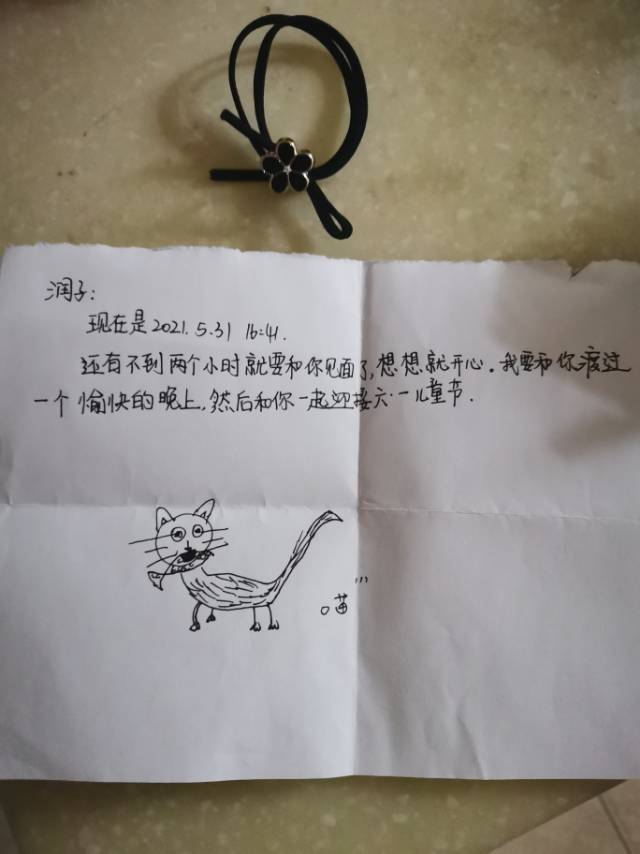 润子：
现在是2021.5.31 16:41.
还有不到两个小时就要和你见面了，想想就开心。我要和你度过
一个愉快的晚上，然后和你一起迎接六·一儿童节.
喵...